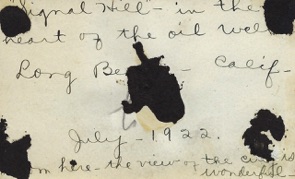 "Signal Hill" - in the
heart of the oil well
Long Be - Calif -
July - 1922.
om here - the view of the is
wonderful -